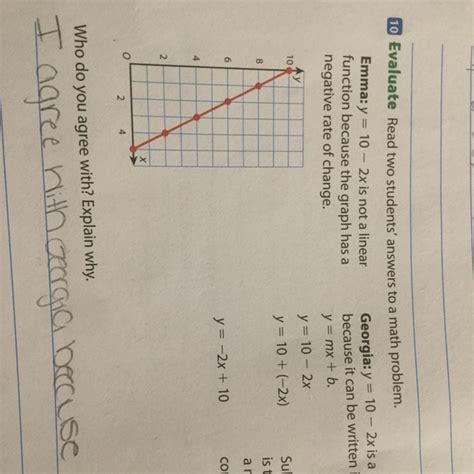 10 Evaluate Read two students' answers to a math problem.
Emma: y = 10 − 2x is not a linear
function because the graph has a
negative rate of change.
y
10
8
6
4
2
O
2
4
x
Georgia: y = 10 − 2x is a
because it can be written
y = mx + b.
y = 10 − 2x
y = 10 + (−2x)
y = −2x + 10
Who do you agree with? Explain why.
I agree with Georgia because